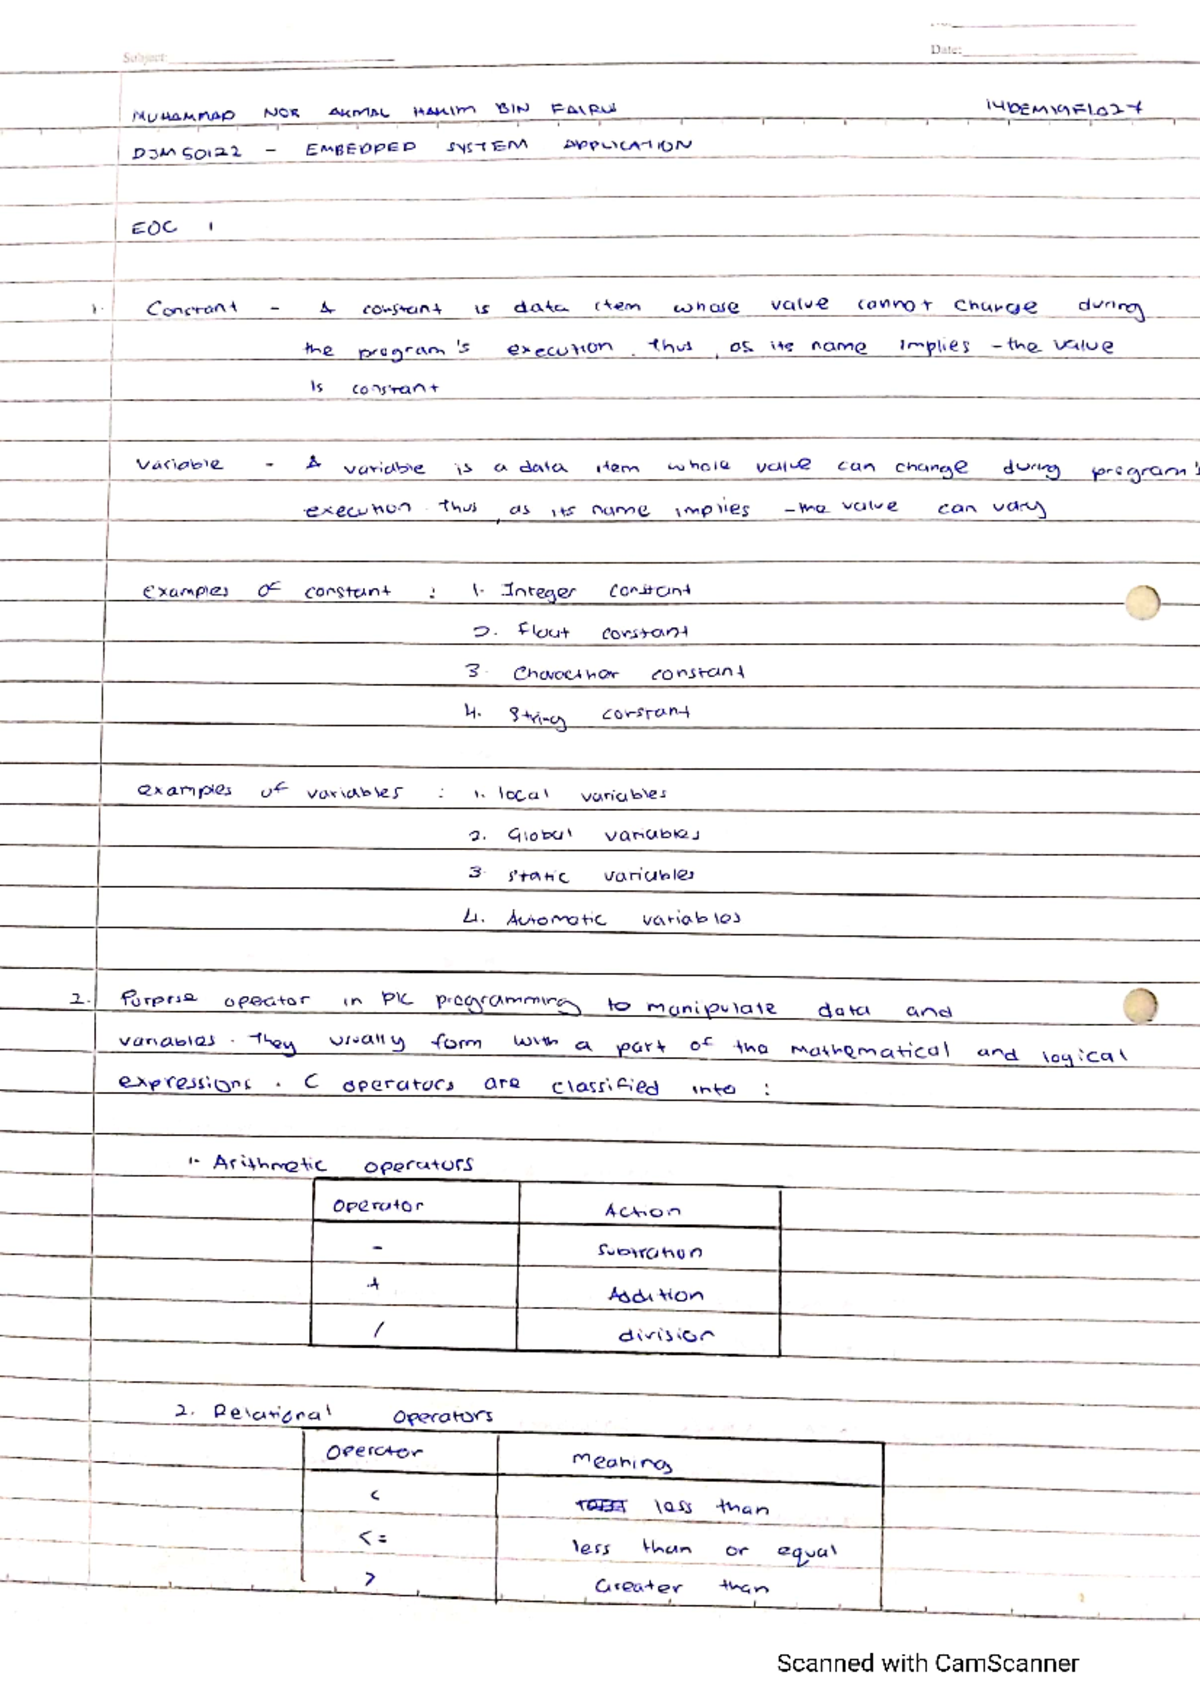 Subject:
Date:
MUHAMMAD NOR AKMAL HAKIM BIN FAIRUL 14DEM19F1027
DJM50122 - EMBEDDED SYSTEM APPLICATION
EOC 1
1. Constant - A constant is data item whose value cannot change during
the program's execution. Thus, as its name implies - the value
is constant
Variable - A variable is a data item whole value can change during program's
execution. Thus, as its name implies - the value can vary
Examples of constant : 1. Integer constant
2. Float constant
3. Characther constant
4. String constant
examples of variables : 1. local variables
2. Global variables
3. Static variables
4. Automatic variables
2. Purpose operator in PIC programming to manipulate data and
variables. They usually form with a part of the mathematical and logical
expressions. C operators are classified into :
1. Arithmetic operators
Operator Action
- Subtration
+ Addition
/ division
2. Relational Operators
Operator Meaning
< less than
<= less than or equal
> Greater than
Scanned with CamScanner